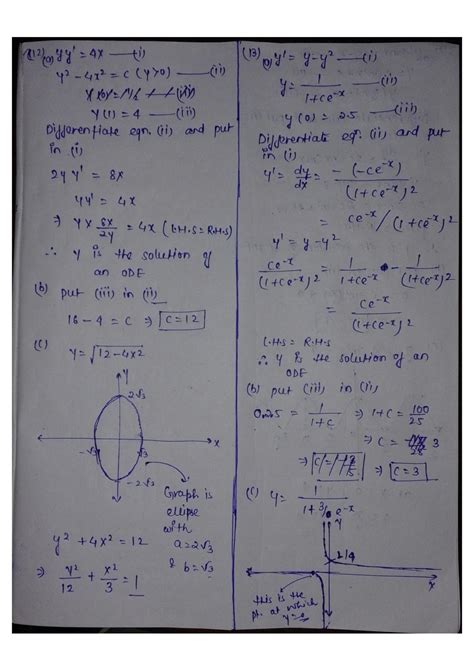 (12) (a) yy' = 4x —(i)
y² - 4x² = c (y>0) —(ii)
y(1) = 4 —(iii)
Differentiate eqn. (ii) and put
in (i)
2y y' = 8x
yy' = 4x
⇒ y × 8x/2y = 4x (L.H.S = R.H.S)
∴ y is the solution of
an ODE
(b) put (iii) in (ii)
16 - 4 = c ⇒ c = 12
(c) y = √(12-4x²)
y
2√3
x
-√3
√3
-2√3
Graph is
ellipse
with
a = 2√3
& b = √3
y² + 4x² = 12
⇒ y²/12 + x²/3 = 1
(13) (a) y' = y - y² —(i)
y = 1/(1+ce⁻ˣ) —(ii)
y(0) = 2.5 —(iii)
Differentiate eqn. (ii) and put
in (i)
y' = dy/dx = -(-ce⁻ˣ)/(1+ce⁻ˣ)²
= ce⁻ˣ/(1+ce⁻ˣ)²
y' = y - y²
ce⁻ˣ/(1+ce⁻ˣ)² = 1/(1+ce⁻ˣ) - 1/(1+ce⁻ˣ)²
= ce⁻ˣ/(1+ce⁻ˣ)²
L.H.S = R.H.S
∴ y is the solution of an
ODE
(b) put (iii) in (ii)
= 1/(1+c) ⇒ 1+c = 100/25
⇒ c = 3
⇒ c = 3
(c) y = 1/(1+3/e⁻ˣ)
y
x
this is the
pt. at which